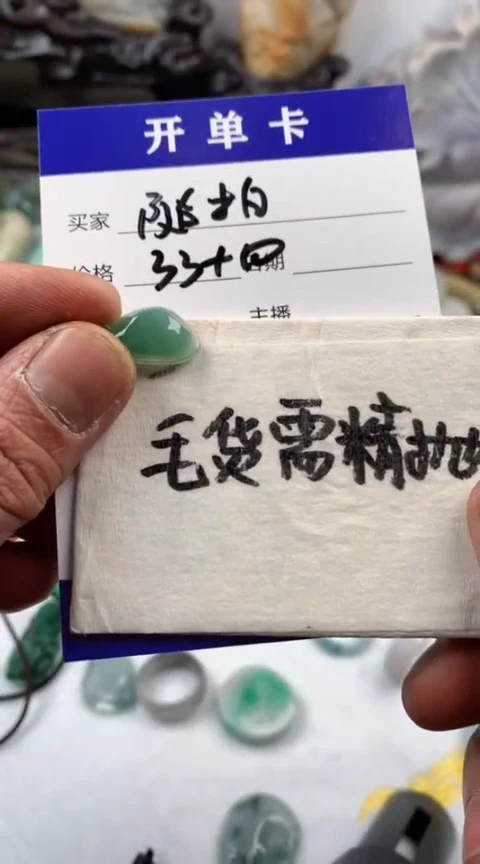 开单卡
买家 随拍
价格 33十四 日期
主播
毛货需精抛